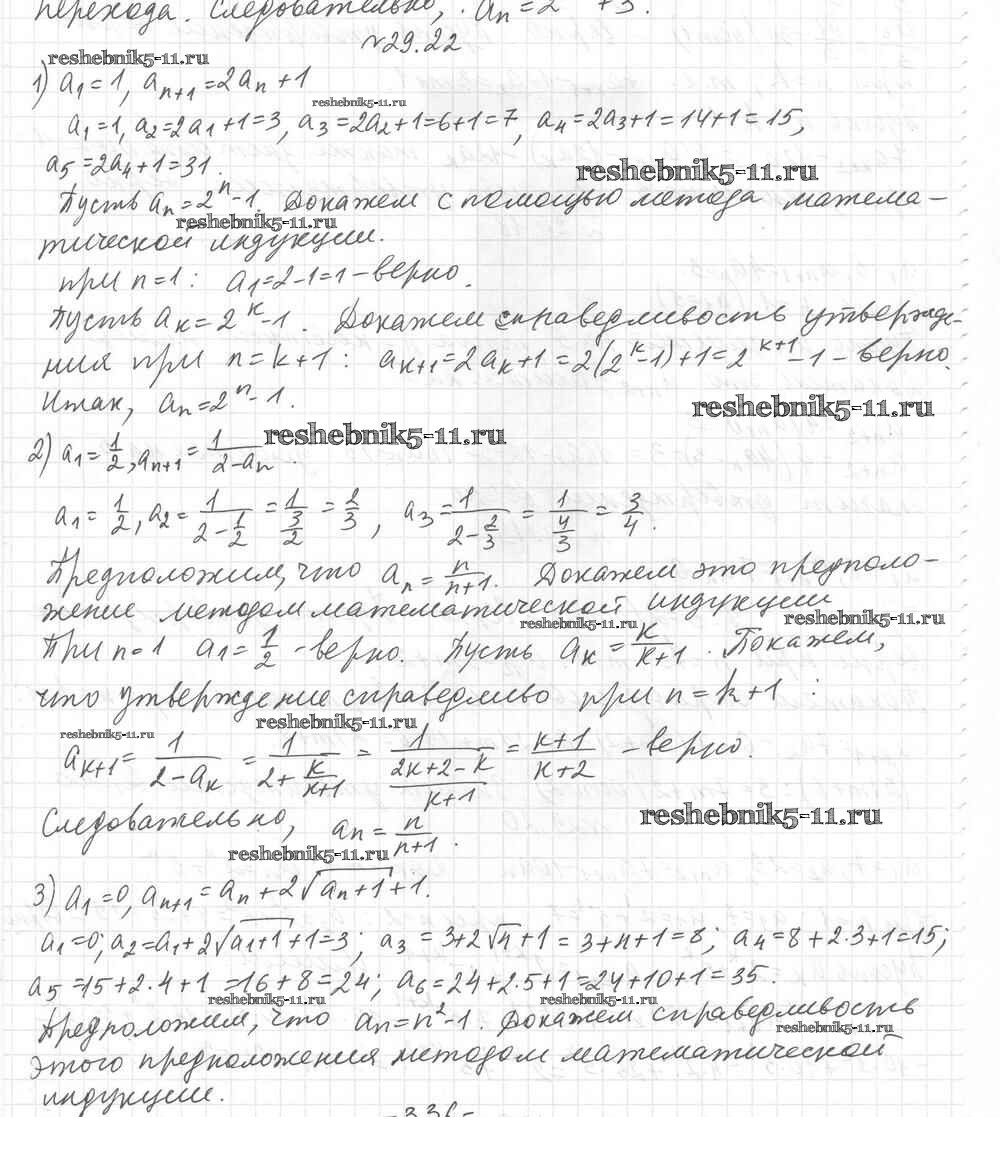 перехода. Следовательно, . aₙ = 2 + 3.
№29.22
reshebnik5-11.ru
1) a₁ = 1, aₙ₊₁ = 2aₙ + 1
reshebnik5-11.ru
a₁ = 1, a₂ = 2a₁ + 1 = 3, a₃ = 2a₂ + 1 = 6 + 1 = 7, a₄ = 2a₃ + 1 = 14 + 1 = 15,
a₅ = 2a₄ + 1 = 31.
reshebnik5-11.ru
Пусть aₙ = 2ⁿ - 1. Докажем с помощью метода матема-
reshebnik5-11.ru
тической индукции.
при n = 1: a₁ = 2 - 1 = 1 - верно.
Пусть aₖ = 2ᵏ - 1. Докажем справедливость утвержде-
ния при n = k + 1: aₖ₊₁ = 2aₖ + 1 = 2(2ᵏ - 1) + 1 = 2ᵏ⁺¹ - 1 - верно.
Итак, aₙ = 2ⁿ - 1.
reshebnik5-11.ru
reshebnik5-11.ru
2) a₁ = 1/2, aₙ₊₁ = 1/(2 - aₙ).
a₁ = 1/2, a₂ = 1/(2 - 1/2) = 1/(3/2) = 2/3, a₃ = 1/(2 - 2/3) = 1/(4/3) = 3/4.
Предположим, что aₙ = n/(n+1). Докажем это предполо-
жение методом математической индукции
reshebnik5-11.ru
reshebnik5-11.ru
При n = 1 a₁ = 1/2 - верно. Пусть aₖ = k/(k+1). Покажем,
что утверждение справедливо при n = k + 1 :
reshebnik5-11.ru
reshebnik5-11.ru
aₖ₊₁ = 1/(2 - aₖ) = 1/(2 + k/(k+1)) = 1/((2k+2-k)/(k+1)) = (k+1)/(k+2) - верно.
reshebnik5-11.ru
Следовательно, aₙ = n/(n+1).
reshebnik5-11.ru
3) a₁ = 0, aₙ₊₁ = aₙ + 2√(aₙ + 1) + 1.
a₁ = 0; a₂ = a₁ + 2√(a₁+1) + 1 = 3; a₃ = 3 + 2√4 + 1 = 3 + 4 + 1 = 8; a₄ = 8 + 2·3 + 1 = 15;
a₅ = 15 + 2·4 + 1 = 16 + 8 = 24; a₆ = 24 + 2·5 + 1 = 24 + 10 + 1 = 35.
reshebnik5-11.ru
reshebnik5-11.ru
Предположим, что aₙ = n² - 1. Докажем справедливость
reshebnik5-11.ru
этого предположения методом математической
индукции.